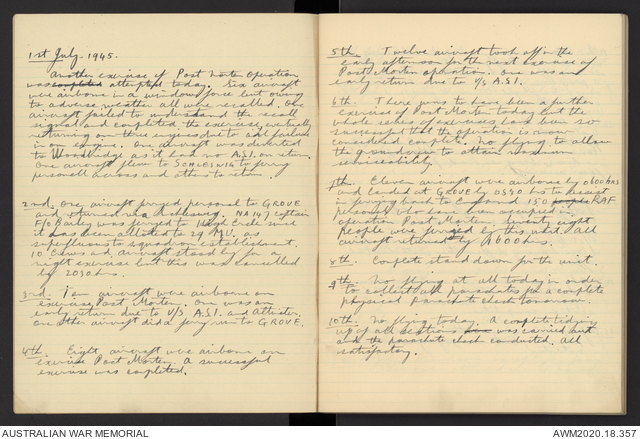 1st July 1945.
Another exercise of Post Mortem Operation
was completed attempted today. Six aircraft
were airborne in a window force but owing
to adverse weather all were recalled. One
aircraft failed to understand the recall
signal and completed the exercise, eventually
returning on three engines due to oil failure
in an engine. One aircraft was diverted
to Woodbridge as it had no A.S.I. on return.
One aircraft flew to SCHLESWIG to ferry
personell across and others to return.
2nd. One aircraft ferryed personel to GROVE
and returned via Schleswig. NA147 captain
F/O was ferryed to High Ercall since
it has been allotted to 29 M.U. as
superfluous to squadron establishment.
10 Crews and aircraft stood by for a
night exercise but this was cancelled
by 2030 hrs.
3rd. Ten aircraft were airborne on
exercise, Post Mortem. One was an
early return due to U/S A.S.I. and Altimeter.
One other aircraft did a ferry run to GROVE.
4th. Eight aircraft were airborne on
exercise Post Mortem. A successful
exercise was completed.
5th. Twelve aircraft took off in the
early afternoon for the next exercise of
Post Mortem operation. One was an
early return due to U/S A.S.I.
6th. There was to have been a further
exercise of Post Mortem today but the
whole series of exercises has been so
successful that the operation is now
considered complete. No flying to allow
the groundcrew to attain maximum
serviceability.
7th. Eleven aircraft were airborne by 0600 hrs
and landed at GROVE by 0510 hrs to assist
in ferrying back to England 150 people RAF
personel who have been occupied in
operation Post Mortem. Twenty eight
People were ferryed by this unit. All
aircraft returned by 1600 hrs.
8th. Complete stand down for the unit.
9th. No flying at all today in order
to collect all parachutes for a complete
physical parachute check tomorrow.
10th. No flying today. A complete tidying
up of all sections was carried out
and the parachute check conducted. All
satisfactory.
AUSTRALIAN WAR MEMORIAL
AWM2020.18.357